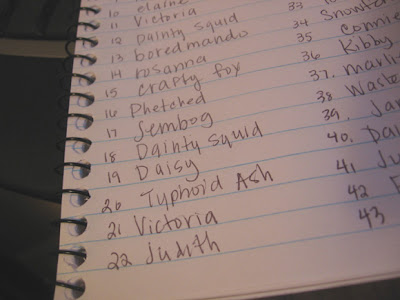 10 elaine
11 Victoria
12 Dainty Squid
13 boredmando
14 rosanna
15 crafty fox
16 Phetched
17 Jembog
18 Dainty Squid
19 Daisy
20 Typhoid Ash
21 Victoria
22 Judith
33
34
35 Connie
36 Kibby
37. Marli
38 Waste
39. Ja
40. Dai
41 Ju
42
43